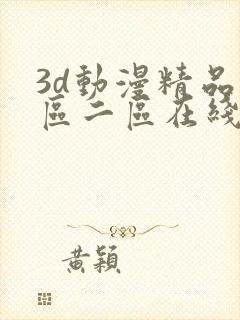 3d動漫精品
區二區在綫
黃穎